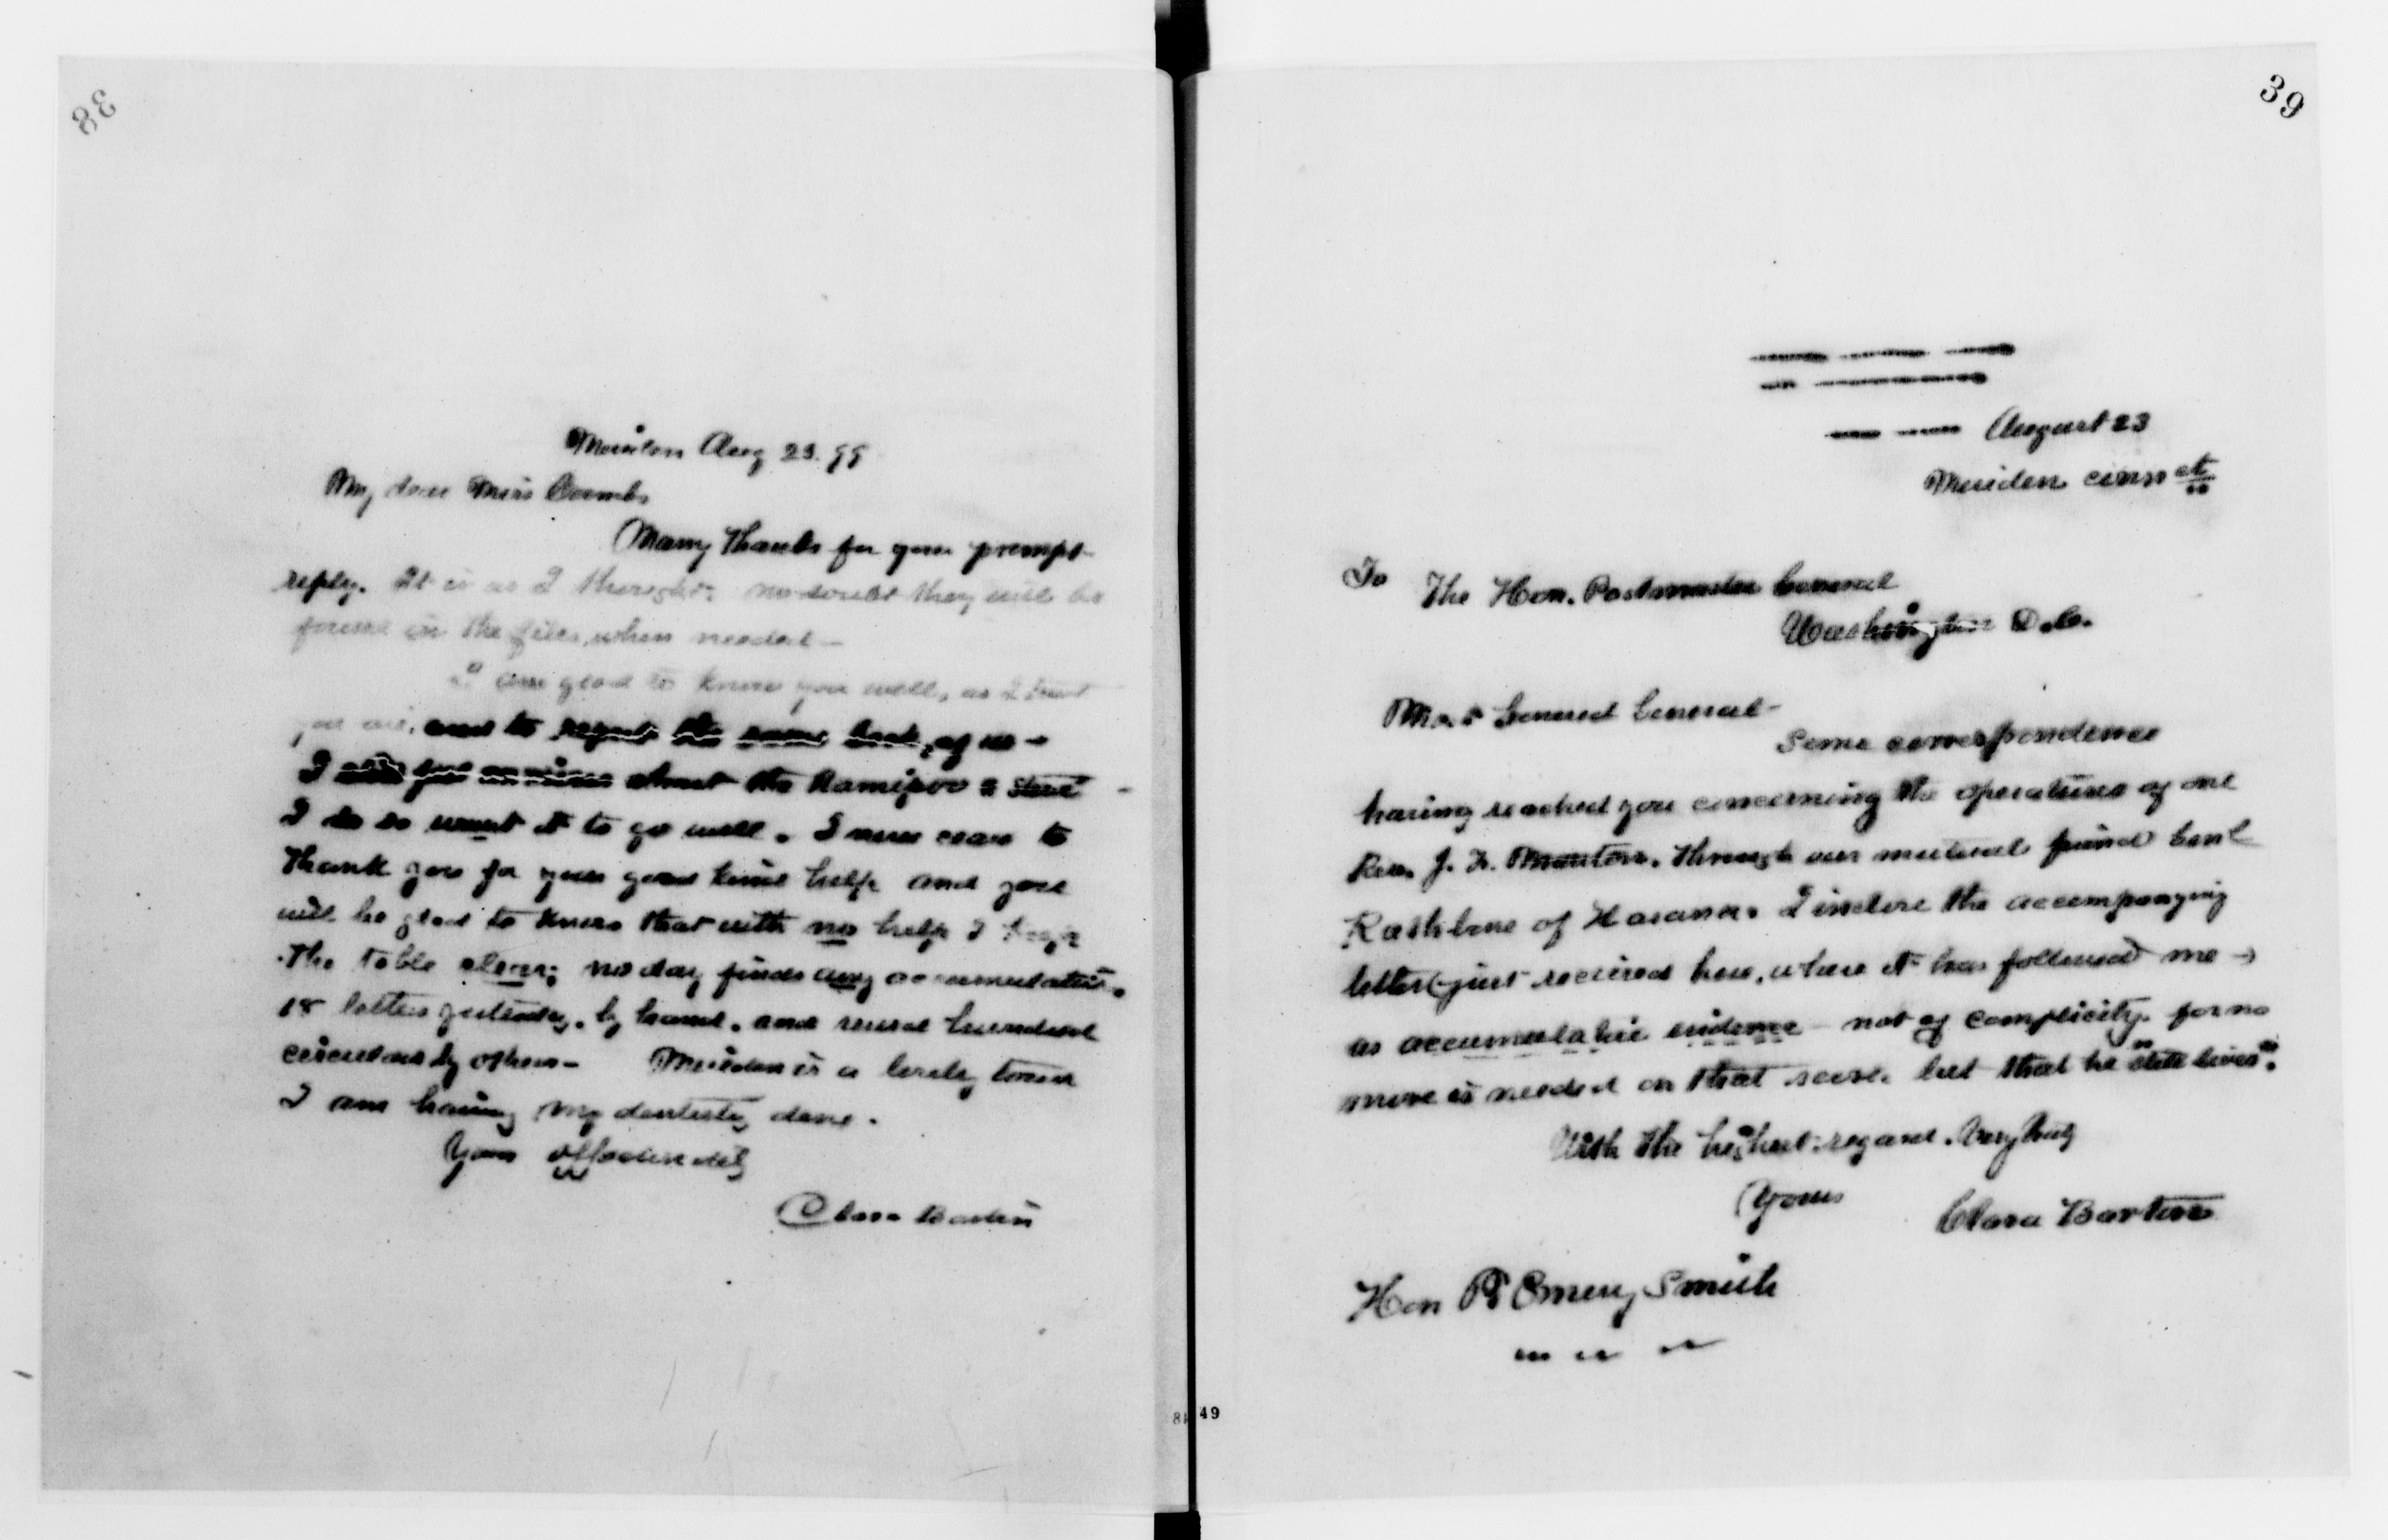 38
Meriden Aug 23. 99
My dear Miss Coombs
Many thanks for your prompt
reply. It is as I thought; no doubt they will be
found in the files, when needed—
I am glad to know you well, as I trust
you are, and to report the same back, of us—
I about the &
I do so want it to go well. I never cease to
thank you for your good kind help and you
will be glad to know that with no help I keep
the table clear; no day finds any accumulation.
18 letters yesterday, by hand, and several hundred
circulars by others— Meriden is a lovely town
I am having my dentistry done.
Yours affectionately
Clara Barton
39
August 23
Meriden Conn ct
To The Hon. Postmaster General
Washington D.C.
Most honored General—
Some correspondence
having reached you concerning the operations of one
Rev. J. K. through our mutual friend Genl
Rathbone of Havana. I inclose the accompanying
letter (just received here, where it has followed me—)
as accumulative evidence—not of complicity, for no
more is needed on that score, but that he "still lives".
With the highest regard. Very truly
Yours Clara Barton
Hon Emory Smith
49